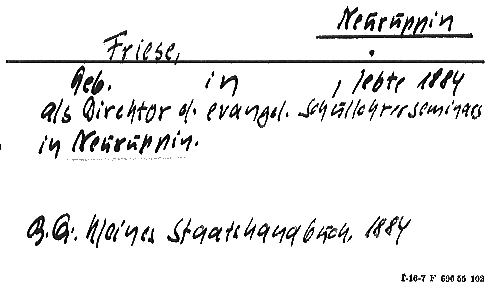 Neuruppin
Friese,
Geb. in , lebte 1884
als Direktor d. evangel. Schullehrerseminars
in Neuruppin.
B.Q. Kleines Staatshandbuch, 1884
I-16-7 F 696 55 102